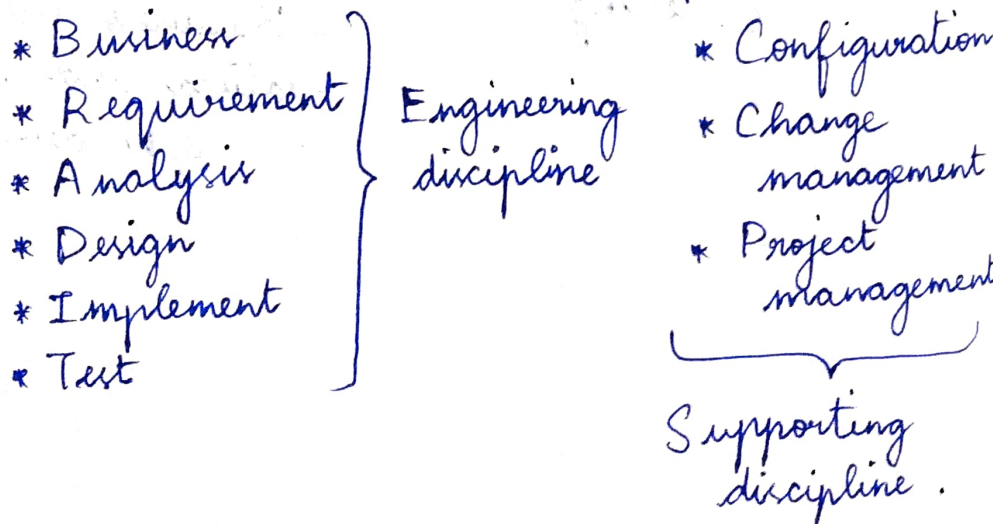 * Business
* Requirement
* Analysis
* Design
* Implement
* Test
Engineering
discipline
* Configuration
* Change
management
* Project
management
Supporting
discipline.